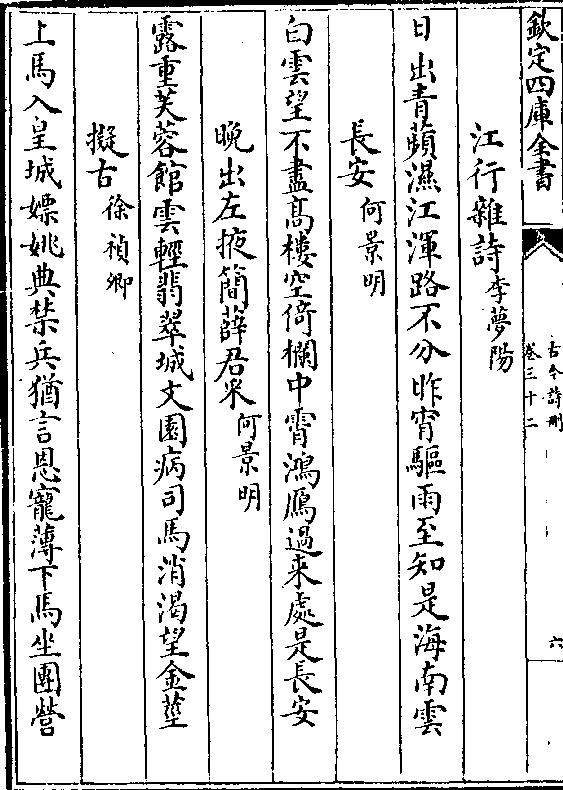 欽定四庫全書
古今詩刪
卷三十二
六
江行雜詩 李夢陽
日出青蘋濕江渾路不分昨宵驅雨至知是海南雲
長安 何景明
白雲望不盡高樓空倚欄中霄鴻鴈過来處是長安
晚出左掖簡薛君采 何景明
露重芙蓉館雲輕翡翠城文園病司馬消渴望金莖
擬古 徐禎卿
上馬入皇城嫖姚典禁兵猶言恩寵薄下馬坐團營